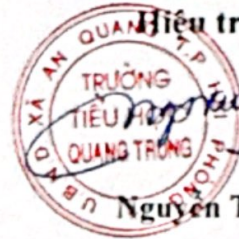 Hiệu tr
UBND XÃ AN QUANG T.P HẢI PHÒNG
TRƯỜNG
TIỂU
QUANG TRUNG
Nguyễn T